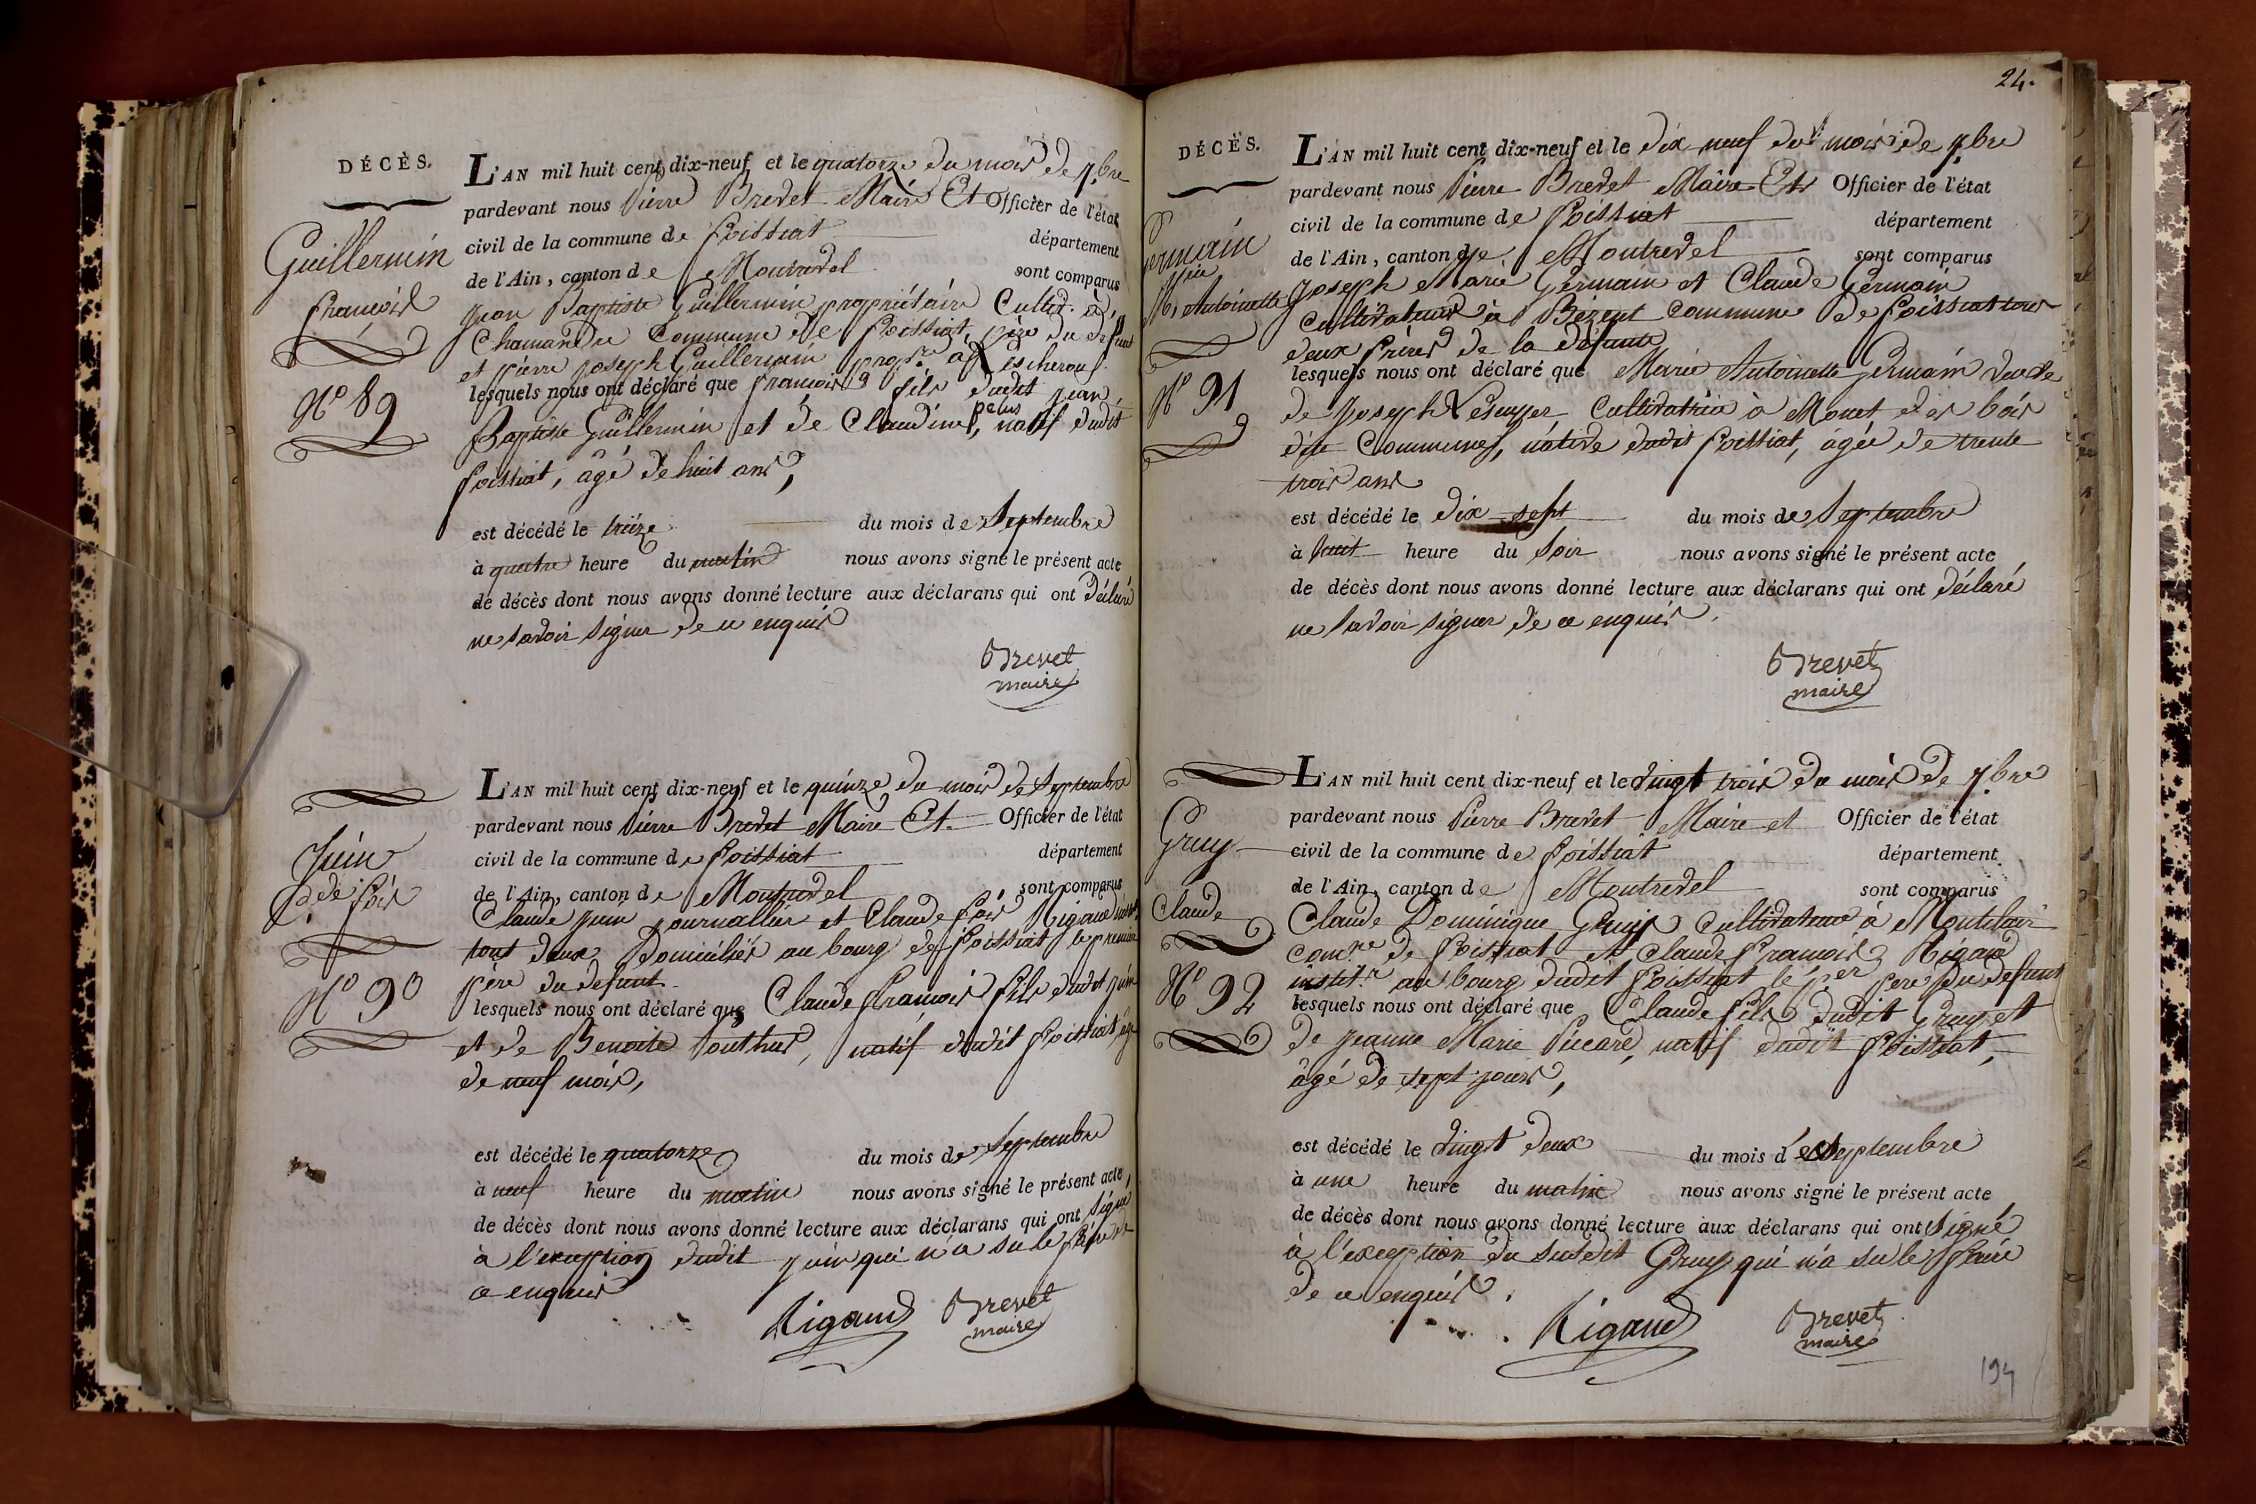 DÉCÈS.
Guillermin
françois
N.º 89
L'AN mil huit cent dix-neuf et le quatorze du mois de 7.bre
pardevant nous Pierre Brevet Maire Et Officier de l'état
civil de la commune de foissiat département
de l'Ain, canton de Montrevel sont comparus
jean Baptiste Guillermin propriétaire Cultiv. à
Chamandre Commune de foissiat, père du defunt
et pierre joseph Guillermin prop.re à Lescheroux
lesquels nous ont déclaré que françois fils dudit jean
Baptiste Guillermin et de Claudine pelus, natif dudit
foissiat, âgé de huit ans,
est décédé le treize du mois de Septembre
à quatre heure du matin nous avons signé le présent acte
de décès dont nous avons donné lecture aux déclarans qui ont déclaré
ne savoir signer de ce enquis
Brevet
maire
Juin
C.de fois
N.º 90
L'AN mil huit cent dix-neuf et le quinze du mois de Septembre
pardevant nous Pierre Brevet Maire Et Officier de l'état
civil de la commune de foissiat département
de l'Ain, canton de Montrevel sont comparus
Claude juin journallier et Claude fois Rigaud
tous deux Domiciliés au bourg de foissiat, le premier
père du defunt
lesquels nous ont déclaré que Claude françois fils dudit juin
et de Benoite Touthus, natif dudit foissiat, âgé
de neuf mois,
est décédé le quatorze du mois de Septembre
à neuf heure du matin nous avons signé le présent acte,
de décès dont nous avons donné lecture aux déclarans qui ont signé
à l'exception dudit juin qui n'a su le faire de
ce enquis
Rigaud Brevet
maire
24.
DÉCÈS.
Germain
M. Antoinette
N.º 91
L'AN mil huit cent dix-neuf et le dix neuf du mois de 7.bre
pardevant nous Pierre Brevet Maire Et Officier de l'état
civil de la commune de foissiat département
de l'Ain, canton de Montrevel sont comparus
joseph Marie Germain et Claude Germain
Cultivateurs à Bezent Commune de foissiat tous
deux frères de la défunte
lesquels nous ont déclaré que Marie Antoinette Germain veuve
de joseph Cultivatrice à Monet es bois
dite Commune, native dudit foissiat, âgée de trente
trois ans
est décédé le dix sept du mois de Septembre
à huit heure du soir nous avons signé le présent acte
de décès dont nous avons donné lecture aux déclarans qui ont déclaré
ne savoir signer de ce enquis.
Brevet
maire
Gruy
Claude
N.º 92
L'AN mil huit cent dix-neuf et le vingt trois du mois de 7.bre
pardevant nous Pierre Brevet Maire et Officier de l'état
civil de la commune de foissiat département
de l'Ain, canton de Montrevel sont comparus
Claude Dominique Gruy Cultivateur à Montclair
com.ne de foissiat et Claude françois Rigaud
instit.r au bourg dudit foissiat le p.er père du defunt
lesquels nous ont déclaré que Claude fils dudit Gruy et
de jeanne Marie Piccard, natif dudit foissiat,
âgé de sept jours,
est décédé le vingt deux du mois de Septembre
à une heure du matin nous avons signé le présent acte
de décès dont nous avons donné lecture aux déclarans qui ont signé
à l'exception du susdit Gruy qui n'a su le faire
de ce enquis.
Rigaud Brevet
maire
194